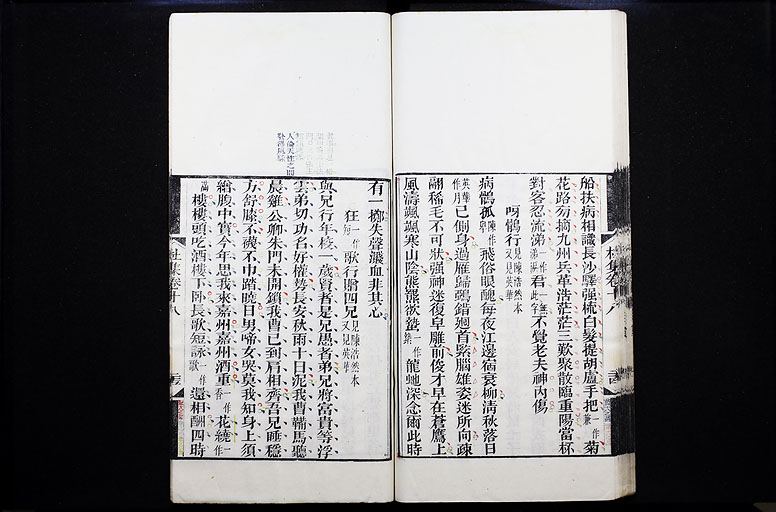 船扶病相識長沙驛強梳白髮提胡盧手把兼一作菊
花路勿摘九州兵革浩茫茫三歎聚散臨重陽當杯
對客忍流涕一作涕淚君一無此字不覺老夫神內傷
呀鶻行見陳浩然本又見英華
病鶻孤陳作卑飛俗眼醜每夜江邊宿衰柳清秋落日
英華作月已側身過雁歸鴉錯迴首緊腦雄姿迷所向疎
翮稀毛不可狀強神迷復皁雕前俊才早在蒼鷹上
風濤颯颯寒山陰熊羆欲蟄一作縶龍虵深念爾此時
有一擲失聲濺血非其心
狂一作短歌行贈四兄見陳浩然本又見英華
與兄行年校一歲賢者是兄愚者弟兄將富貴等浮
雲弟切功名好權勢長安秋雨十日泥我曹鞴馬聽
晨雞公卿朱門未開鎖我曹已到肩相齊吾兄睡穩
方舒膝不襪不巾踏曉日男啼女哭莫我知身上須
繒腹中實今年思我來嘉州嘉州酒重一作香花繞一作
滿樓樓頭吃酒樓下臥長歌短詠一作歌還相酬四時
杜集卷十八
人倫天性之間